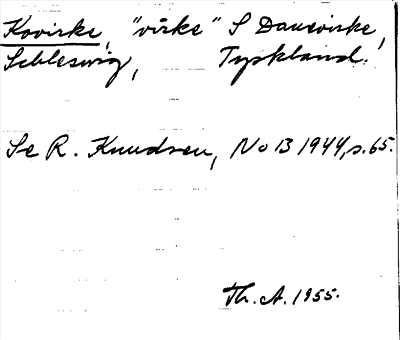 Kovirke, "virke" S Danevirke,
Schleswig, Tyskland.
Se R. Knudsen, No 13 1944, s. 65.
Th. A. 1955.